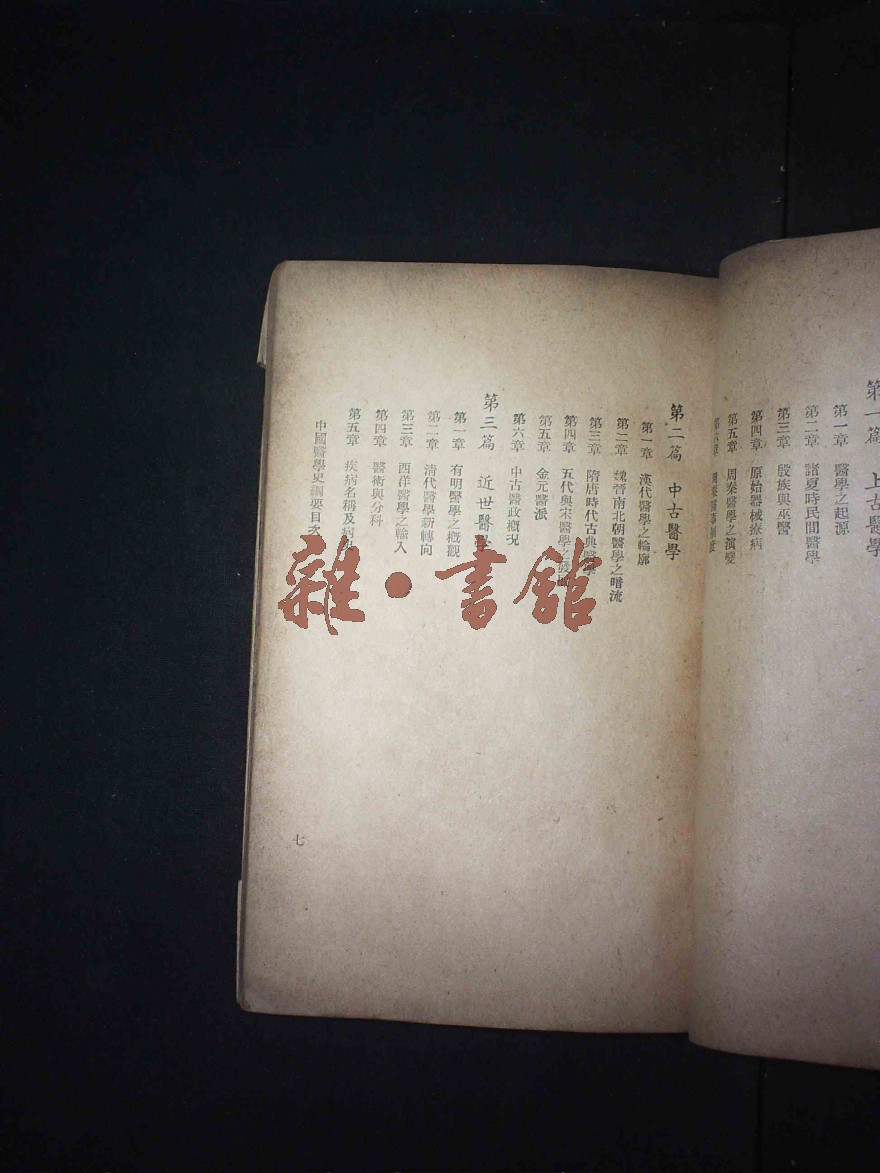 第一篇 上古醫學
第一章 醫學之起源
第二章 諸夏時民間醫學
第三章 殷族與巫醫
第四章 原始器械療病
第五章 周秦醫學之演變
第六章 周秦醫事制度
第二篇 中古醫學
第一章 漢代醫學之輪廓
第二章 魏晉南北朝醫學之暗流
第三章 隋唐時代古典醫學
第四章 五代與宋醫學之發
第五章 金元醫派
第六章 中古醫政概況
第三篇 近世醫學
第一章 有明醫學之概觀
第二章 清代醫學新轉向
第三章 西洋醫學之輸入
第四章 醫術與分科
第五章 疾病名稱及病
中國醫學史綱要目次
七
雜·書館